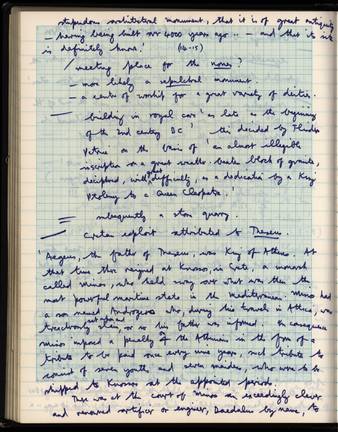 stupendous architectural monument, that it is of great antiquity
– having been built over 4000 years ago .. – and that its site
is definitely known.' (14-15)
meeting place for the nomes?
– more likely a sepulchral monument.
– a centre of worship for a great variety of deities.
building in royal care 'as late as the beginning
of the 2nd century BC' this decided by Flinders
Petrie on the basis of 'an almost illegible
inscription on a great weather beaten block of granite,
deciphered, with great difficulty, as a dedication by a King
Ptolemy to a Queen Cleopatra.'
subsequently a stone quarry.
Cretan exploit attributed to Theseus.
'Aegeus, the father of Theseus, was King of Athens. At
that time there reigned at Knossos, in Crete, a monarch
called Minos, who held sway over what was then the
most powerful maritime state in the Mediterranean. Minos had
a son named Androgeos who, during his travels in Athens, was
treacherously slain, or so his father was informed. In consequence
Minos imposed a penalty on the Athenians in the form of a
tribute to be paid once every nine years, such tribute to
consist of seven youths and seven maidens, who were to be
shipped to Knossos at the appointed period.
There was at the court of Minos an exceedingly clever
and renowned artificer or engineer, Daedalus by name, to